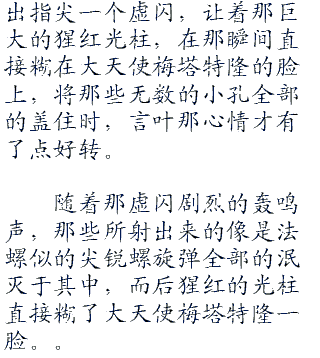 出指尖一个虚闪，让着那巨
大的猩红光柱，在那瞬间直
接糊在大天使梅塔特隆的脸
上，将那些无数的小孔全部
的盖住时，言叶那心情才有
了点好转。
随着那虚闪剧烈的轰鸣
声，那些所射出来的像是法
螺似的尖锐螺旋弹全部的泯
灭于其中，而后猩红的光柱
直接糊了大天使梅塔特隆一
脸。。